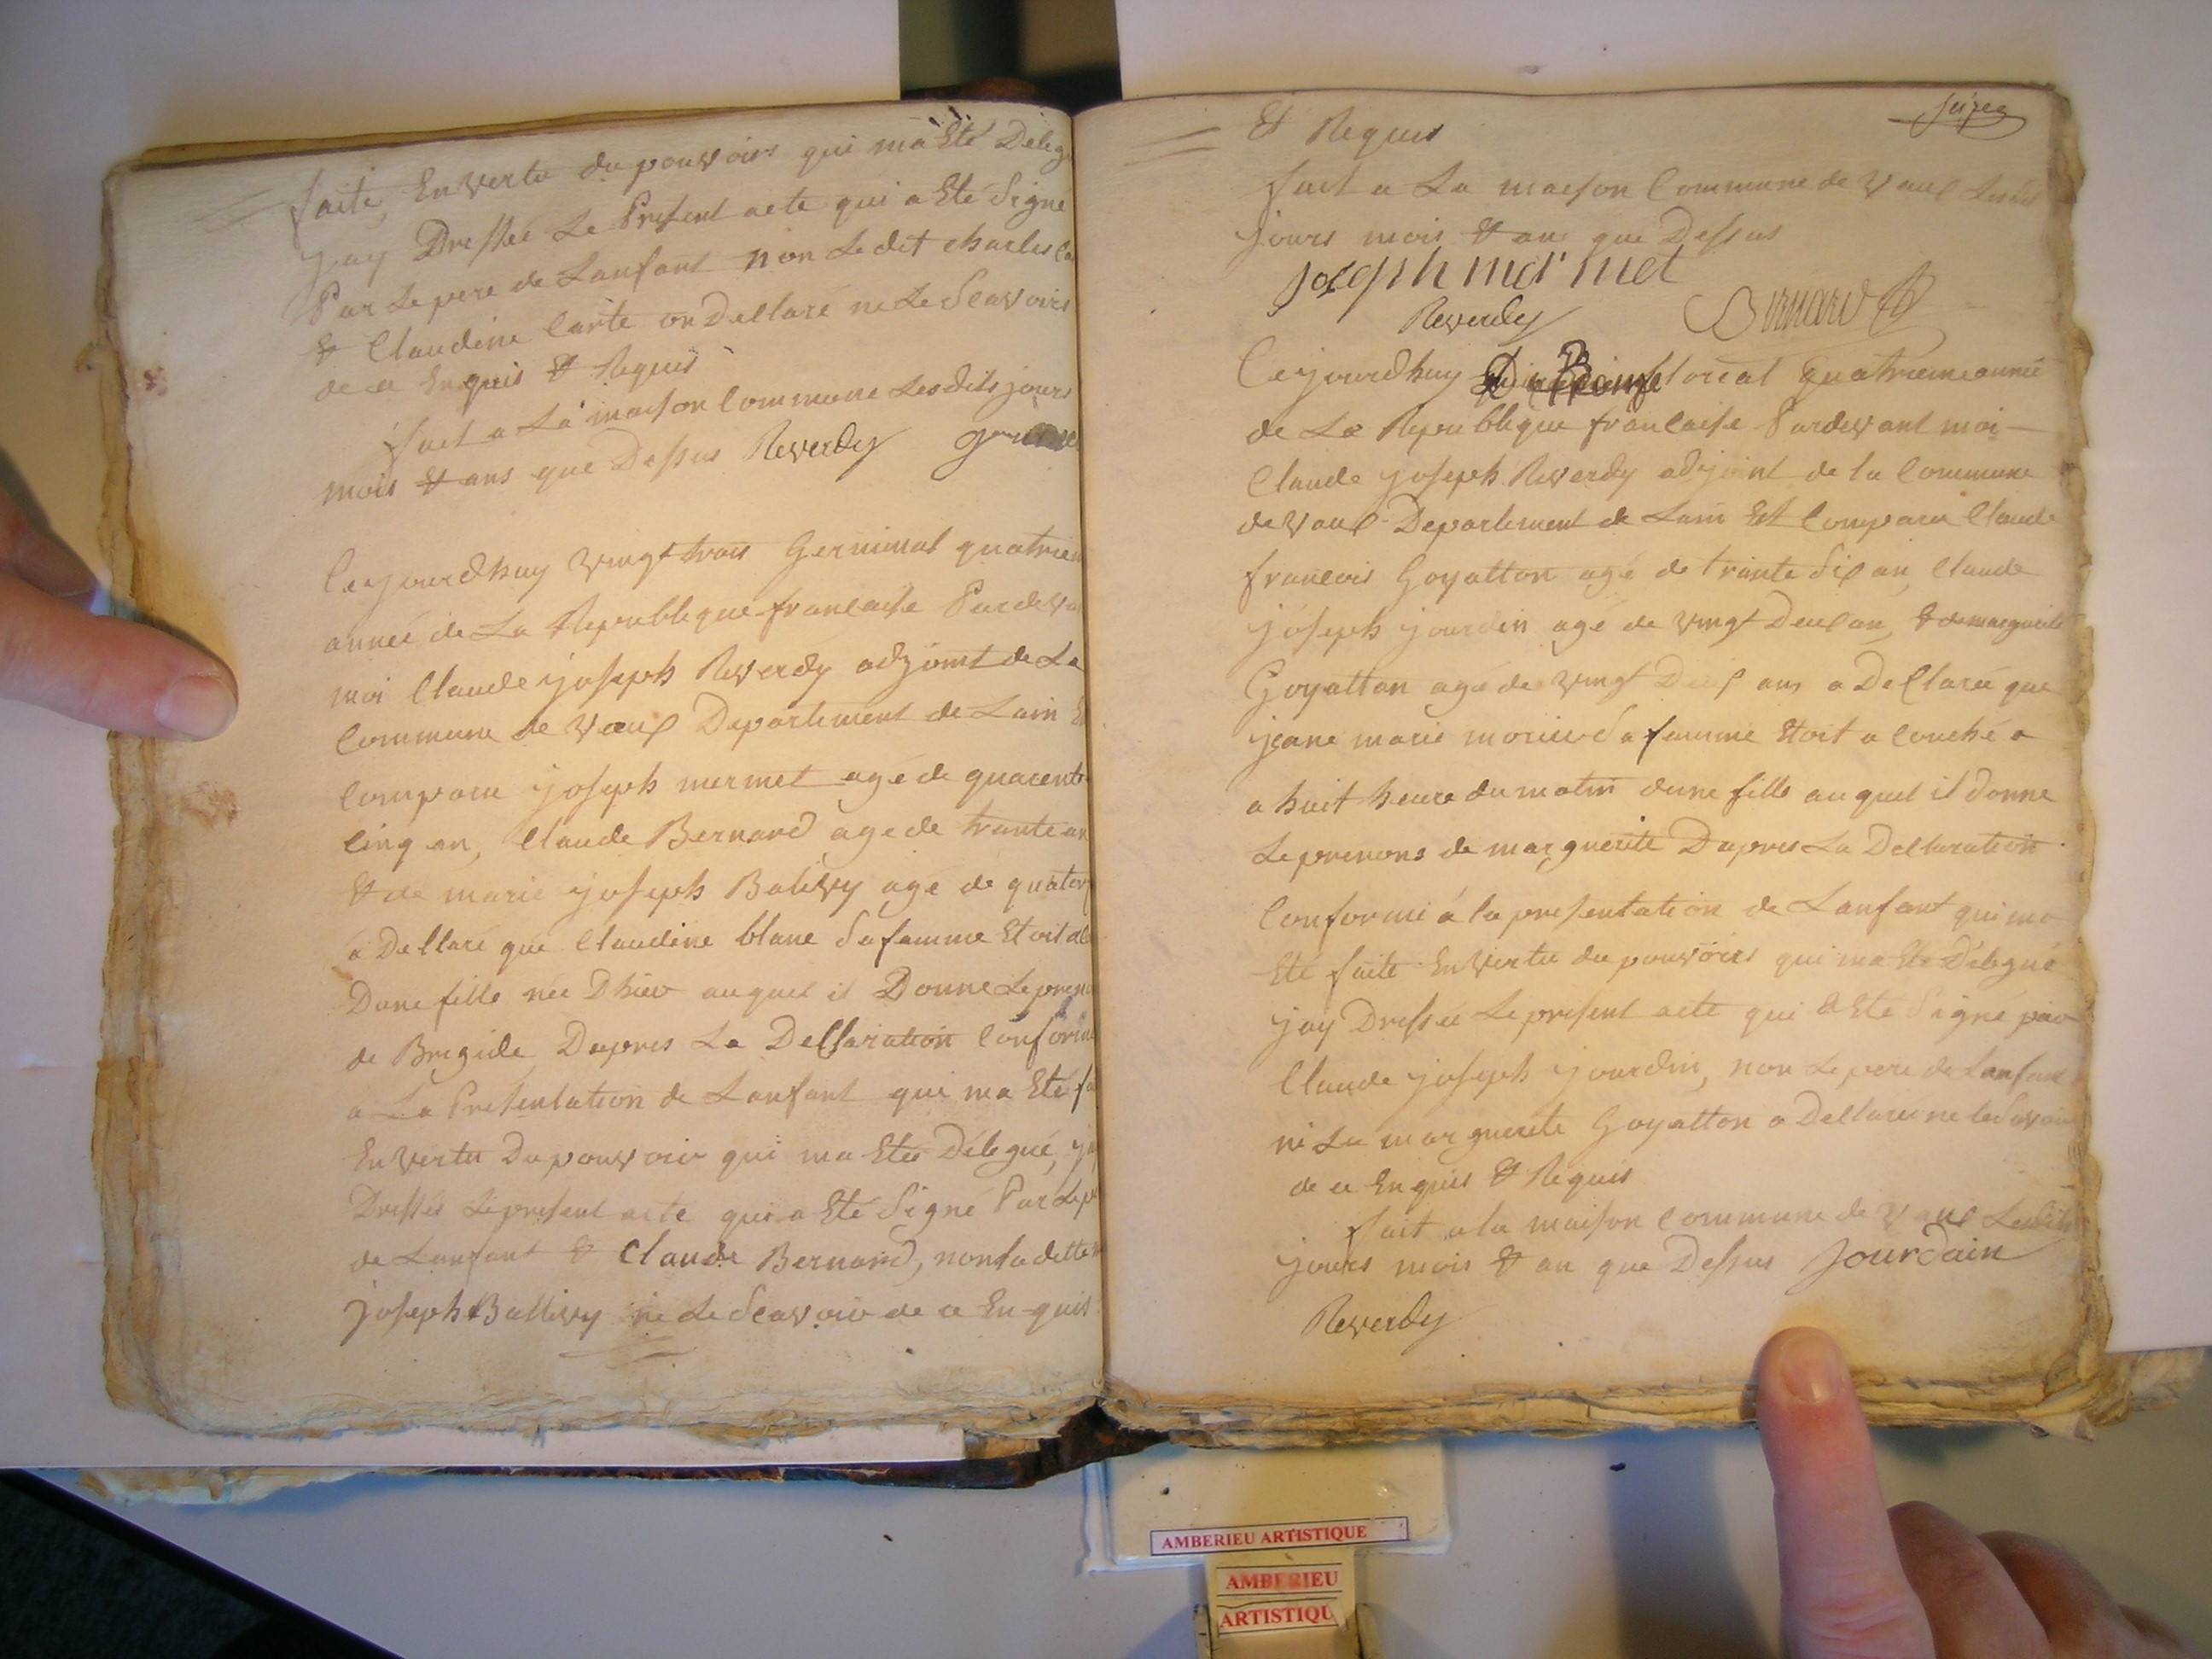 faite, En Vertu du pouvoirs qui ma Eté Deleg
jay Dressée Le Present acte qui a Eté Signé
Par Le pere de Lanfant non Le dit charles
& Claudine Carte on Dellaré ne Le Scavoire
de ce Enquis & Requis
fait a La maison Commune Lesdits jours
mois & ans que Dessus Reverdy
Cejourdhuy Vingt trois Germinal quatriem
année de La Republique francaise Pardeva
moi Claude joseph Reverdy adjoint de La
Commune de Vaux Departement de Lain
Comparu joseph mermet agé de quarente
Cinq an, Claude Bernard age de trante an
& de marie joseph Balivy agé de quator
a Dellaré que Claudine blanc Sa famme Etoit
Dune fille née Dhier auquel il Donne Le pren
de Brigide Dapres La Dellaration Conforme
a La Presentation de Lanfant qui ma Eté fa
En Vertu Du pouvoir qui ma Eté Délegué, ja
Dressée Le present acte qui a Eté Signé Par Le pe
de Lanfant & Claude Bernard, non Ladette
joseph Ballivy ne Le Scavoir de ce Enquis
& Requis
fait a La maison Commune de Vaux Lesdits
jours mois & an que Dessus
joseph mermet
Reverdy Bernard
Cejourdhuy floreal quatrieme année
de La Republique francaise Pardevant moi
Claude joseph Reverdy adjoint de la Commune
de Vaux Departement de Lain Est Comparu Claude
francois Goyatton agé de trante Six an, Claude
joseph jourdin agé de Vingt Deux an, & de marguerite
Goyatton agé de vingt ans a Dellaré que
jeane marie Sa famme Etoit a Couché a
a huit heure du matin dune fille auquel il donne
Le prenons de marguerite Dapres La Dellaration
Conforme á la presentation de Lanfant qui ma
Eté faite En Vertu du pouvoirs qui ma Eté Délegué
jay Dressée Le present acte qui a Eté Signé par
Claude joseph jourdin, non Le pere de Lanfant
ni La marguerite Goyatton a Dellaré ne le Savoir
de ce Enquis & Requis
fait a la maison Commune de Vaux Lesdits
jours mois & an que Dessus Jourdain
Reverdy
AMBERIEU ARTISTIQUE
AMBERIEU
ARTISTIQU